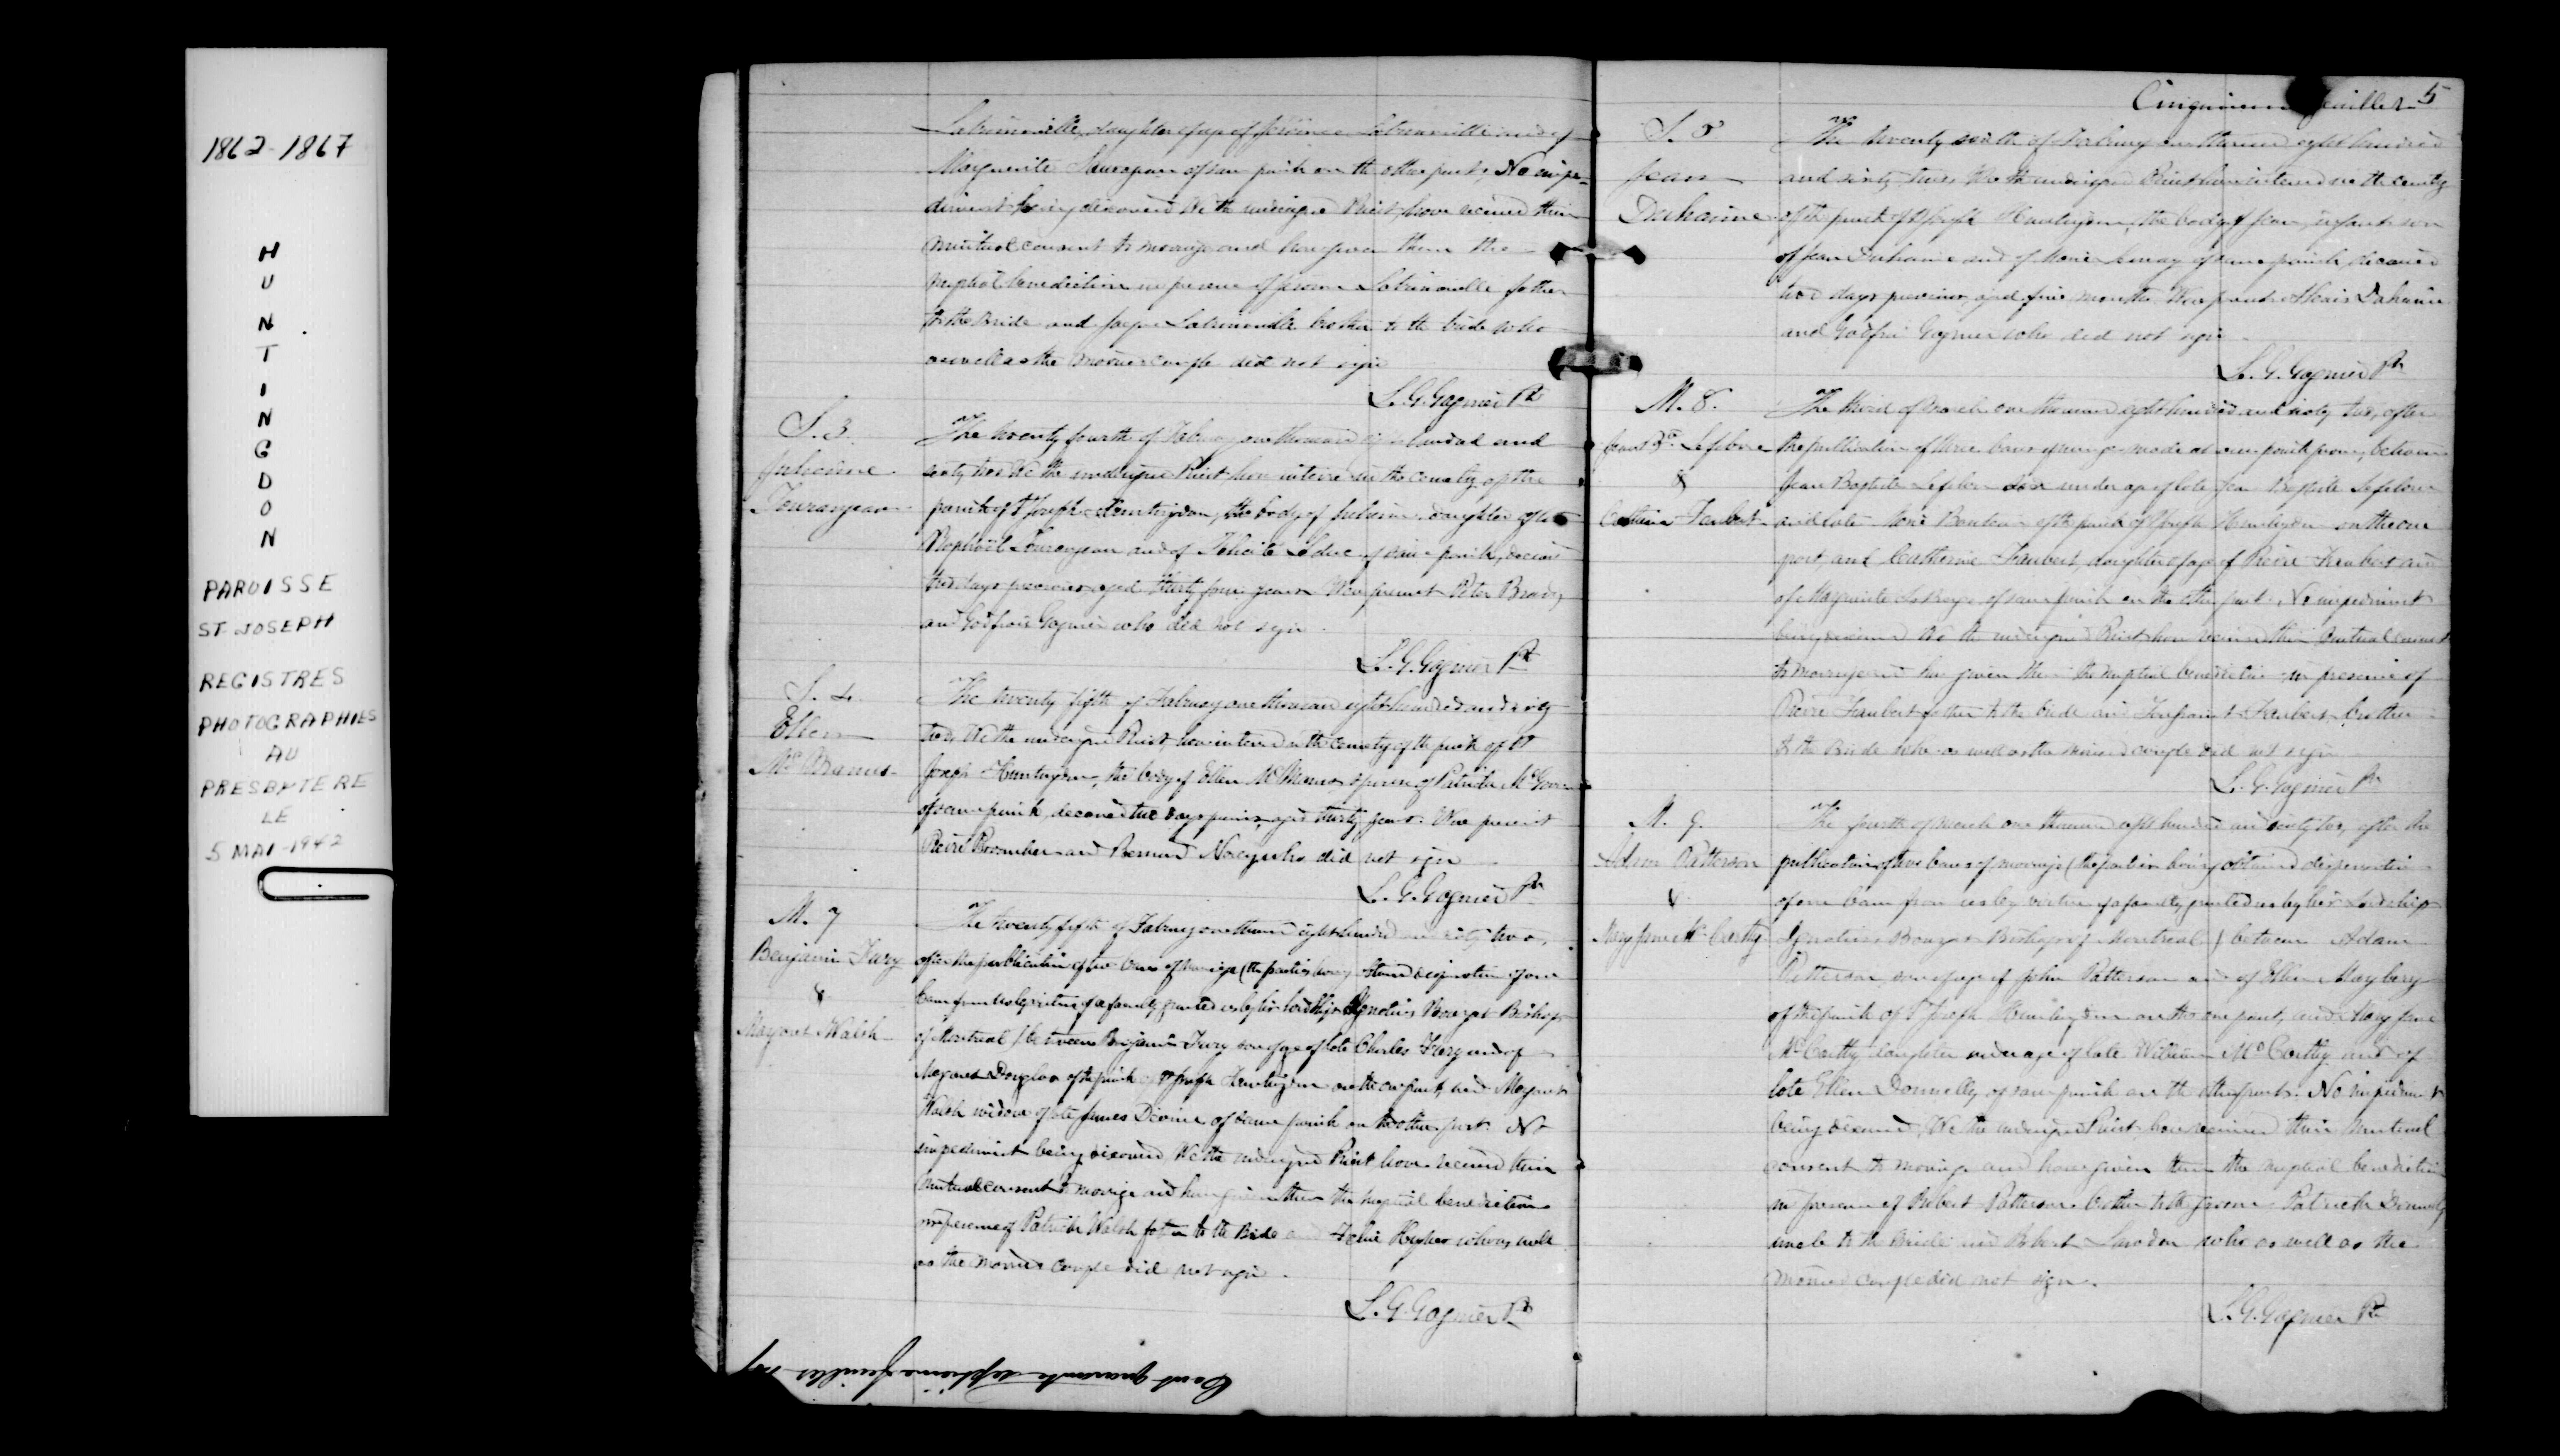 1862-1867
H
U
N
T
I
N
G
D
O
N
PAROISSE
ST-JOSEPH
REGISTRES
PHOTOGRAPHIES
AU
PRESBYTERE
LE
5 MAI-1942
daughter of age of
Marguerite of same parish on the other part. No impe-
diment being discovered We the undersigned Priest have received their
mutual consent to marriage and have given them the
nuptial benediction in presence of father
to the Bride and brother to the bride who
as well as the married couple did not sign
L. G. Gagnier Pt
S. 3.
Julienne
Tourangeau
The twenty fourth of February one thousand eight hundred and
sixty two We the undersigned Priest have interred in the cemetery of the
parish of St Joseph Huntingdon, the body of Julienne daughter of
Raphaël Tourangeau and of Felicité Leduc of same parish, deceased
two days previous aged thirty four years Were present Peter Brady
and Godfroi Gagnier who did not sign
L. G. Gagnier Pt
S. 4.
Ellen
The twenty fifth of February one thousand eight hundred and sixty
two, We the undersigned Priest, have interred in the cemetery of the parish of St
Joseph Huntingdon, the body of Ellen spouse of Patrick
of same parish, deceased two days previous, aged thirty years. Were present
Pierre and Bernard who did not sign
L. G. Gagnier Pt
M. 7
Benjamin Fury
&
Margaret Walsh
The twenty fifth of February one thousand eight hundred and sixty two,
after the publication of two bans of marriage (the parties having obtained dispensation of one
bann from us by virtue of a faculty granted us by his Lordship Ignatius Bourget Bishop
of Montreal) between Benjamin Fury son of age of late Charles Fury and of
Margaret Douglas of the parish of St Joseph Huntingdon on the one part, and Margaret
Walsh widow of late James Divine of same parish on the other part. No
impediment being discovered, We the undersigned Priest have received their
mutual consent to marriage and have given them the nuptial benediction
in presence of Patrick Walsh father to the Bride and Hughes who as well
as the married couple did not sign.
L. G. Gagnier Pt
Cent quarante septième feuillet 147
Cinquième feuillet 5
S. 5
Jean
Duhaime
The twenty sixth of February one thousand eight hundred
and sixty two, We the undersigned Priest have interred in the cemetery
of the parish of St Joseph Huntingdon, the body of Jean, infant son
of Jean Duhaime and of Marie of same parish, deceased
two days previous, aged five months. Were present Duhaime
and Godfroi Gagnier who did not sign
L. G. Gagnier Pt
M. 8.
Jean Bte Lefebvre
&
Catherine Faubert
The third of March one thousand eight hundred and sixty two, after
the publication of three bans of marriage made at our parish prone, between
Jean Baptiste Lefebvre son under age of late Jean Baptiste Lefebvre
and late Marie of the parish of St Joseph Huntingdon on the one
part, and Catherine Faubert, daughter of age of Pierre Faubert and
of Marguerite of same parish on the other part. No impediment
being discovered We the undersigned Priest have received their mutual consent
to marriage and have given them the nuptial benediction in presence of
Pierre Faubert father to the bride and Toussaint Faubert brother
to the Bride who as well as the married couple did not sign
L. G. Gagnier Pt
M. 9.
Adam Patterson
&
Mary Jane McCarthy
The fourth of March one thousand eight hundred and sixty two, after the
publication of two bans of marriage (the parties having obtained dispensation
of one bann from us by virtue of a faculty granted us by his Lordship
Ignatius Bourget Bishop of Montreal) between Adam
Patterson, son of age of John Patterson and of Ellen Mayberry
of the parish of St Joseph Huntingdon on the one part, and Mary Jane
McCarthy daughter under age of late William McCarthy and of
late Ellen Donnelly of same parish on the other part. No impediment
being discovered, We the undersigned Priest, have received their mutual
consent to marriage and have given them the nuptial benediction
in presence of Robert Patterson brother to the groom, Patrick Donnelly
uncle to the Bride and Robert who as well as the
married couple did not sign.
L. G. Gagnier Pt